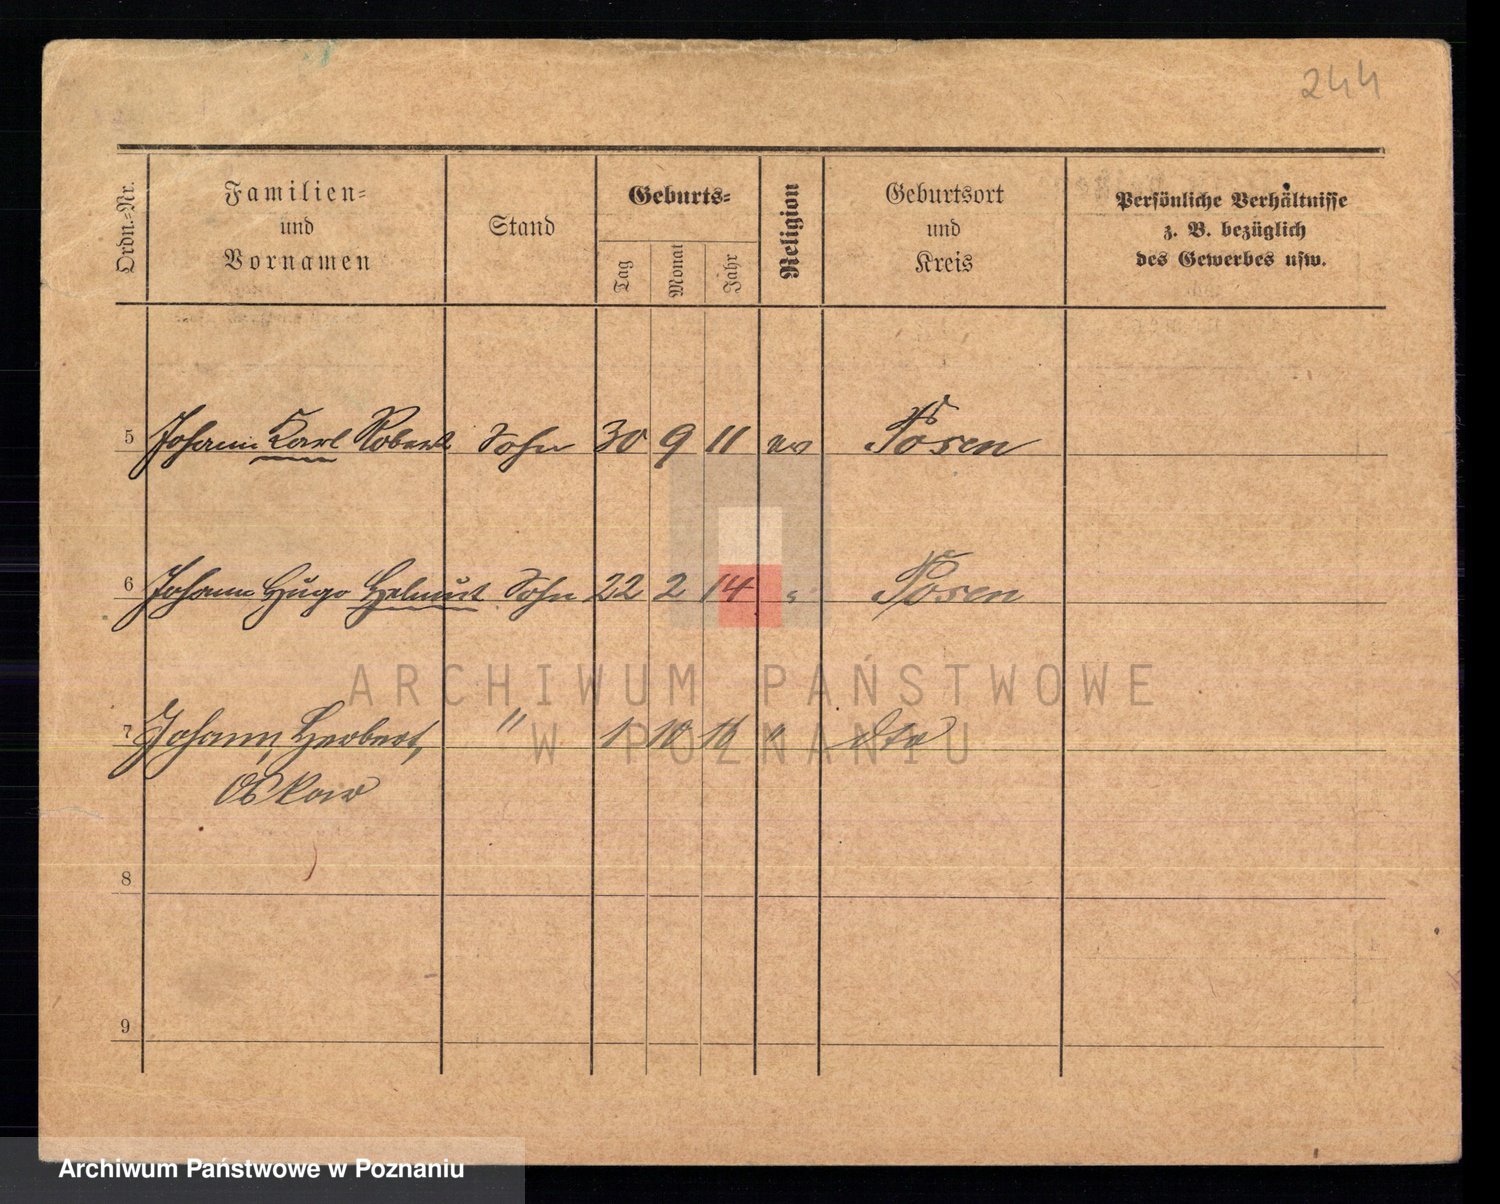 244
Ordn.-Nr.
Familien-
und
Vornamen
Stand
Geburts-
Tag
Monat
Jahr
Religion
Geburtsort
und
Kreis
Persönliche Verhältnisse
z. B. bezüglich
des Gewerbes usw.
5 Johann Karl Robert Sohn 30 9 11 ev Posen
6 Johann Hugo Helmut Sohn 22 2 14 " Posen
7 Johann, Herbert, " 1 10 16 " dto
Oskar
8
9
ARCHIWUM PAŃSTWOWE
W POZNANIU
Archiwum Państwowe w Poznaniu